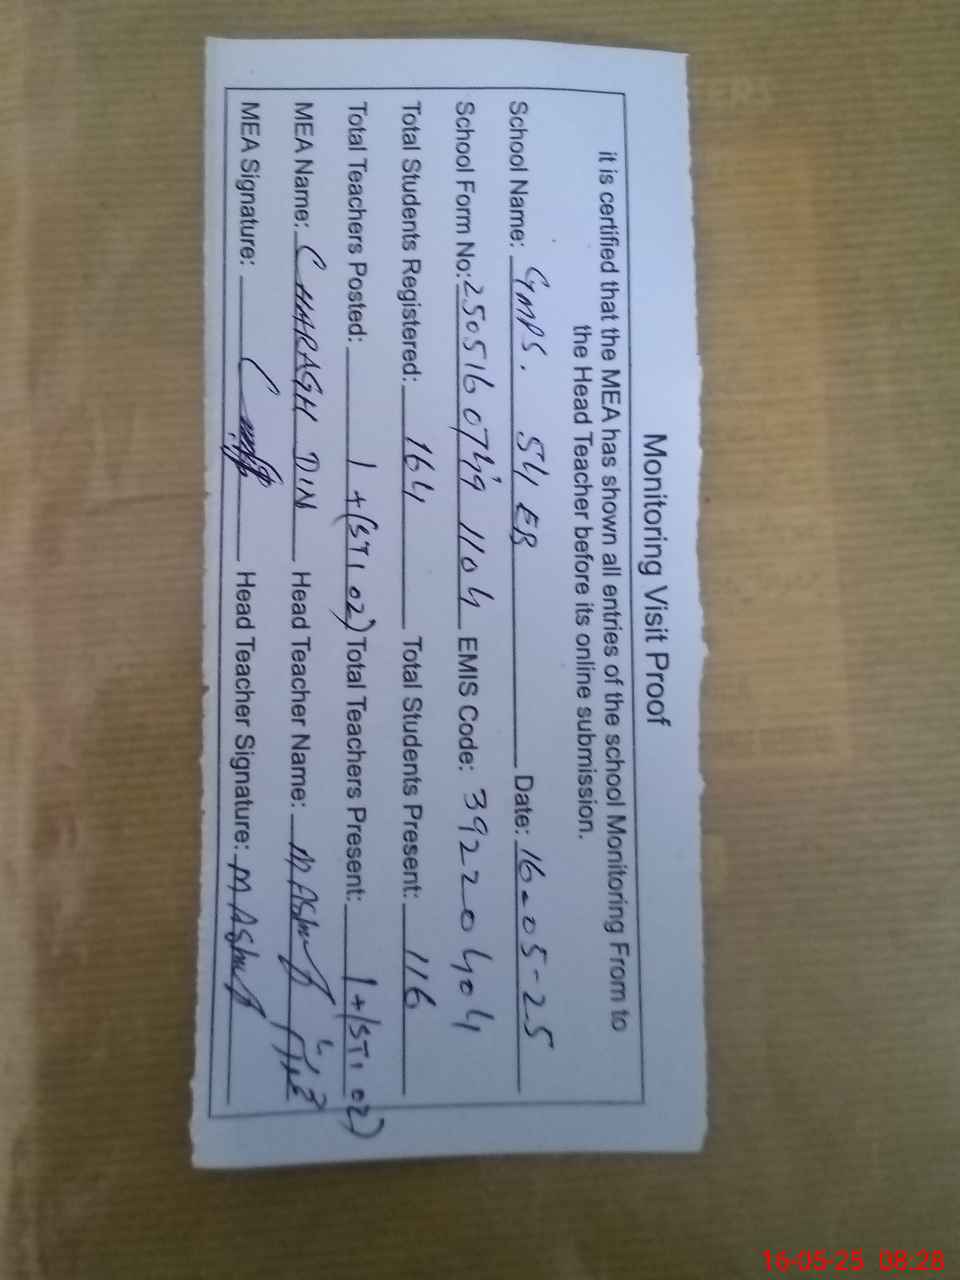 Monitoring Visit Proof
it is certified that the MEA has shown all entries of the school Monitoring From to
the Head Teacher before its online submission.
School Name: GMPS. 54 EB Date: 16-05-25
School Form No: 250516 0749 1104 EMIS Code: 39220404
Total Students Registered: 164 Total Students Present: 116
Total Teachers Posted: 1+(STI 02) Total Teachers Present: 1+(STI 02)
MEA Name: CHARAGH DIN Head Teacher Name: M Ashraf
MEA Signature: Head Teacher Signature: M Ashraf
16-05-25 08:28